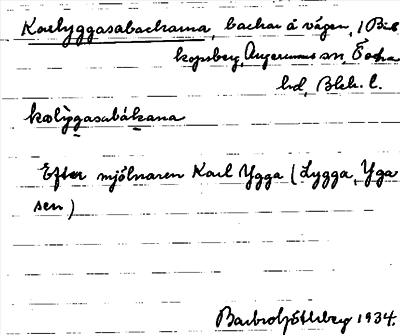 Karlyggasabackarna, backar å vägen, i Bis
kopsberg, Augerums sn, Östra
hd, Blek. l.
kalýgasabákana
Efter mjölnaren Karl Ygga (Lygga, Yga
sen)
1934.